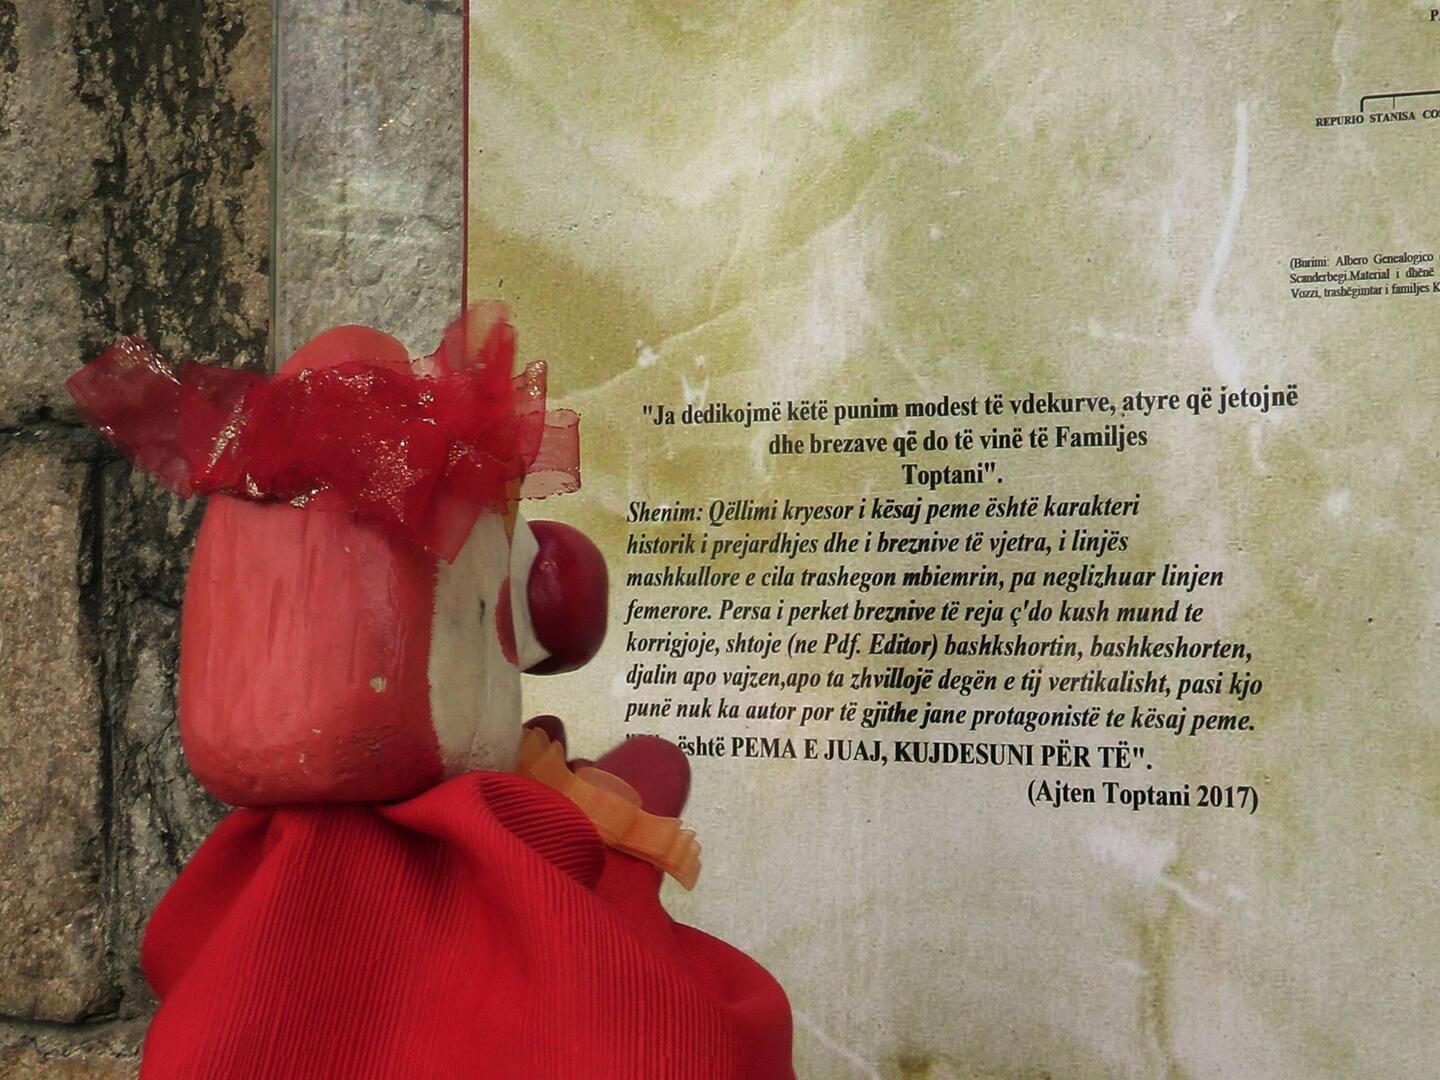 REPURIO STANISA
(Burimi: Albero Genealogico
Scanderbegi.Material i dhënë
Vozzi, trashëgimtar i familjes K
"Ja dedikojmë këtë punim modest të vdekurve, atyre që jetojnë
dhe brezave që do të vinë të Familjes
Toptani".
Shenim: Qëllimi kryesor i kësaj peme është karakteri
historik i prejardhjes dhe i breznive të vjetra, i linjës
mashkullore e cila trashegon mbiemrin, pa neglizhuar linjen
femerore. Persa i perket breznive të reja ç'do kush mund te
korrigjoje, shtoje (ne Pdf. Editor) bashkshortin, bashkeshorten,
djalin apo vajzen,apo ta zhvillojë degën e tij vertikalisht, pasi kjo
punë nuk ka autor por të gjithe jane protagonistë te kësaj peme.
është PEMA E JUAJ, KUJDESUNI PËR TË".
(Ajten Toptani 2017)